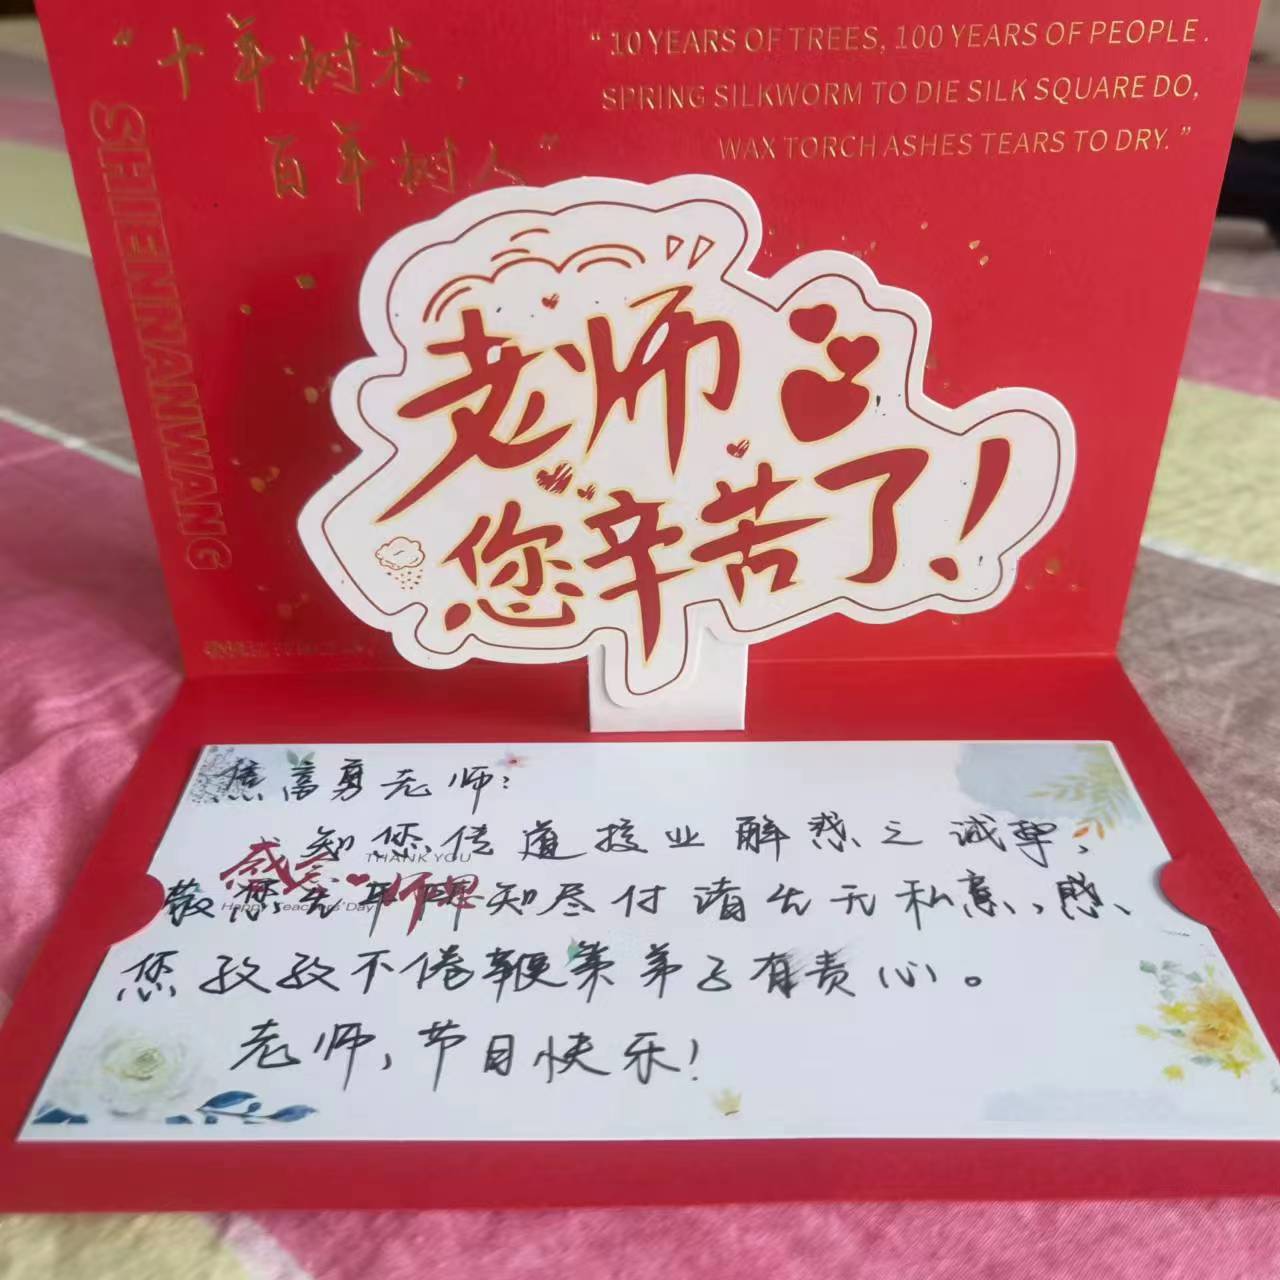 “十年树木，
百年树人”
“10 YEARS OF TREES, 100 YEARS OF PEOPLE.
SPRING SILKWORM TO DIE SILK SQUARE DO,
WAX TORCH ASHES TEARS TO DRY.”
SHIENNANWANG
老师
您辛苦了！
焦高勇老师：
知您传道授业解惑之诚挚，
敬您知尽付诸出无私意，感
您孜孜不倦鞭策弟子有责心。
老师，节日快乐！
感念师恩
THANK YOU
Happy Teachers' Day